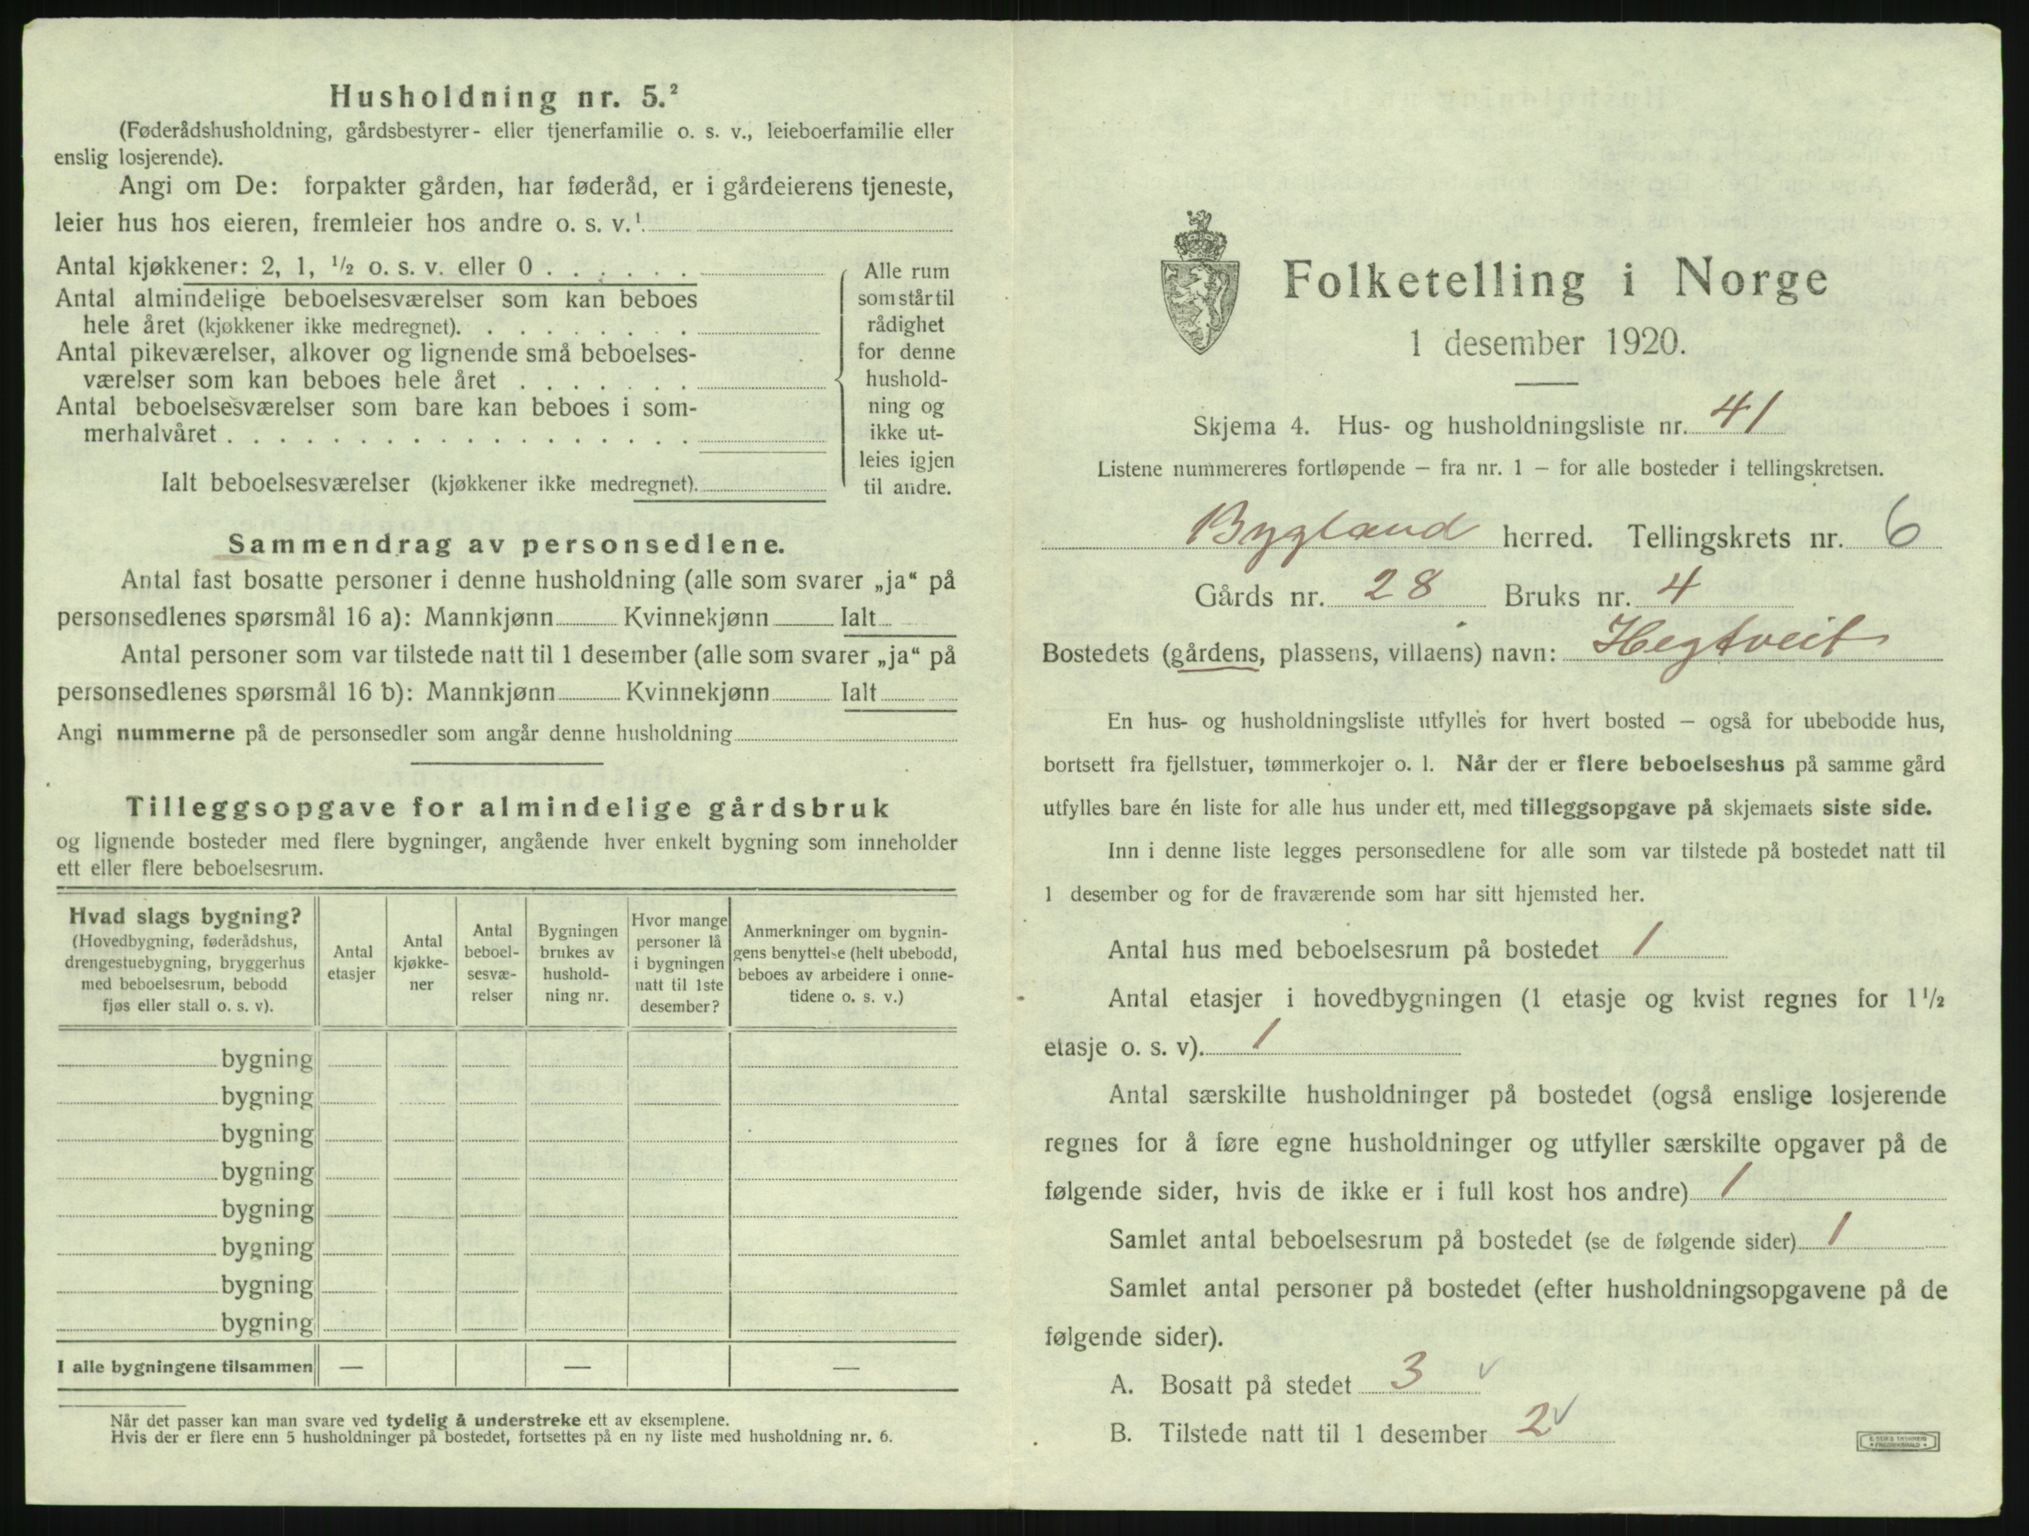 Husholdning nr. 5.²
(Føderådshusholdning, gårdsbestyrer- eller tjenerfamilie o. s. v., leieboerfamilie eller
enslig losjerende).
Angi om De: forpakter gården, har føderåd, er i gårdeierens tjeneste,
leier hus hos eieren, fremleier hos andre o. s. v.¹
Antal kjøkkener: 2, 1, ¹/₂ o. s. v. eller 0 . . . . . .
Antal almindelige beboelsesværelser som kan beboes
hele året (kjøkkener ikke medregnet). . . . . . . . .
Antal pikeværelser, alkover og lignende små beboelses-
værelser som kan beboes hele året . . . . . . .
Antal beboelsesværelser som bare kan beboes i som-
merhalvåret . . . . . . . . . . . . . . . . . .
Ialt beboelsesværelser (kjøkkener ikke medregnet).
Alle rum
som står til
rådighet
for denne
hushold-
ning og
ikke ut-
leies igjen
til andre.
Sammendrag av personsedlene.
Antal fast bosatte personer i denne husholdning (alle som svarer „ja“ på
personsedlenes spørsmål 16 a): Mannkjønn Kvinnekjønn Ialt
Antal personer som var tilstede natt til 1 desember (alle som svarer „ja“ på
personsedlenes spørsmål 16 b): Mannkjønn Kvinnekjønn Ialt
Angi nummerne på de personsedler som angår denne husholdning
Tilleggsopgave for almindelige gårdsbruk
og lignende bosteder med flere bygninger, angående hver enkelt bygning som inneholder
ett eller flere beboelsesrum.
Hvad slags bygning?
(Hovedbygning, føderådshus,
drengestuebygning, bryggerhus
med beboelsesrum, bebodd
fjøs eller stall o. s. v).
Antal
etasjer
Antal
kjøkke-
ner
Antal
beboel-
sesvæ-
relser
Bygningen
brukes av
hushold-
ning nr.
Hvor mange
personer lå
i bygningen
natt til 1ste
desember?
Anmerkninger om bygnin-
gens benyttelse (helt ubebodd,
beboes av arbeidere i onne-
tidene o. s. v.)
bygning
bygning
bygning
bygning
bygning
bygning
bygning
bygning
I alle bygningene tilsammen — — —
Når det passer kan man svare ved tydelig å understreke ett av eksemplene.
Hvis der er flere enn 5 husholdninger på bostedet, fortsettes på en ny liste med husholdning nr. 6.
Folketelling i Norge
1 desember 1920.
Skjema 4. Hus- og husholdningsliste nr. 41
Listene nummereres fortløpende — fra nr. 1 — for alle bosteder i tellingskretsen.
Bygland herred. Tellingskrets nr. 6
Gårds nr. 28 Bruks nr. 4
Bostedets (gårdens, plassens, villaens) navn: Hegtveit
En hus- og husholdningsliste utfylles for hvert bosted — også for ubebodde hus,
bortsett fra fjellstuer, tømmerkojer o. l. Når der er flere beboelseshus på samme gård
utfylles bare én liste for alle hus under ett, med tilleggsopgave på skjemaets siste side.
Inn i denne liste legges personsedlene for alle som var tilstede på bostedet natt til
1 desember og for de fraværende som har sitt hjemsted her.
Antal hus med beboelsesrum på bostedet 1
Antal etasjer i hovedbygningen (1 etasje og kvist regnes for 1 ¹/₂
etasje o. s. v). 1
Antal særskilte husholdninger på bostedet (også enslige losjerende
regnes for å føre egne husholdninger og utfyller særskilte opgaver på de
følgende sider, hvis de ikke er i full kost hos andre) 1
Samlet antal beboelsesrum på bostedet (se de følgende sider) 1
Samlet antal personer på bostedet (efter husholdningsopgavene på de
følgende sider).
A. Bosatt på stedet 3 ✓
B. Tilstede natt til 1 desember 2 ✓